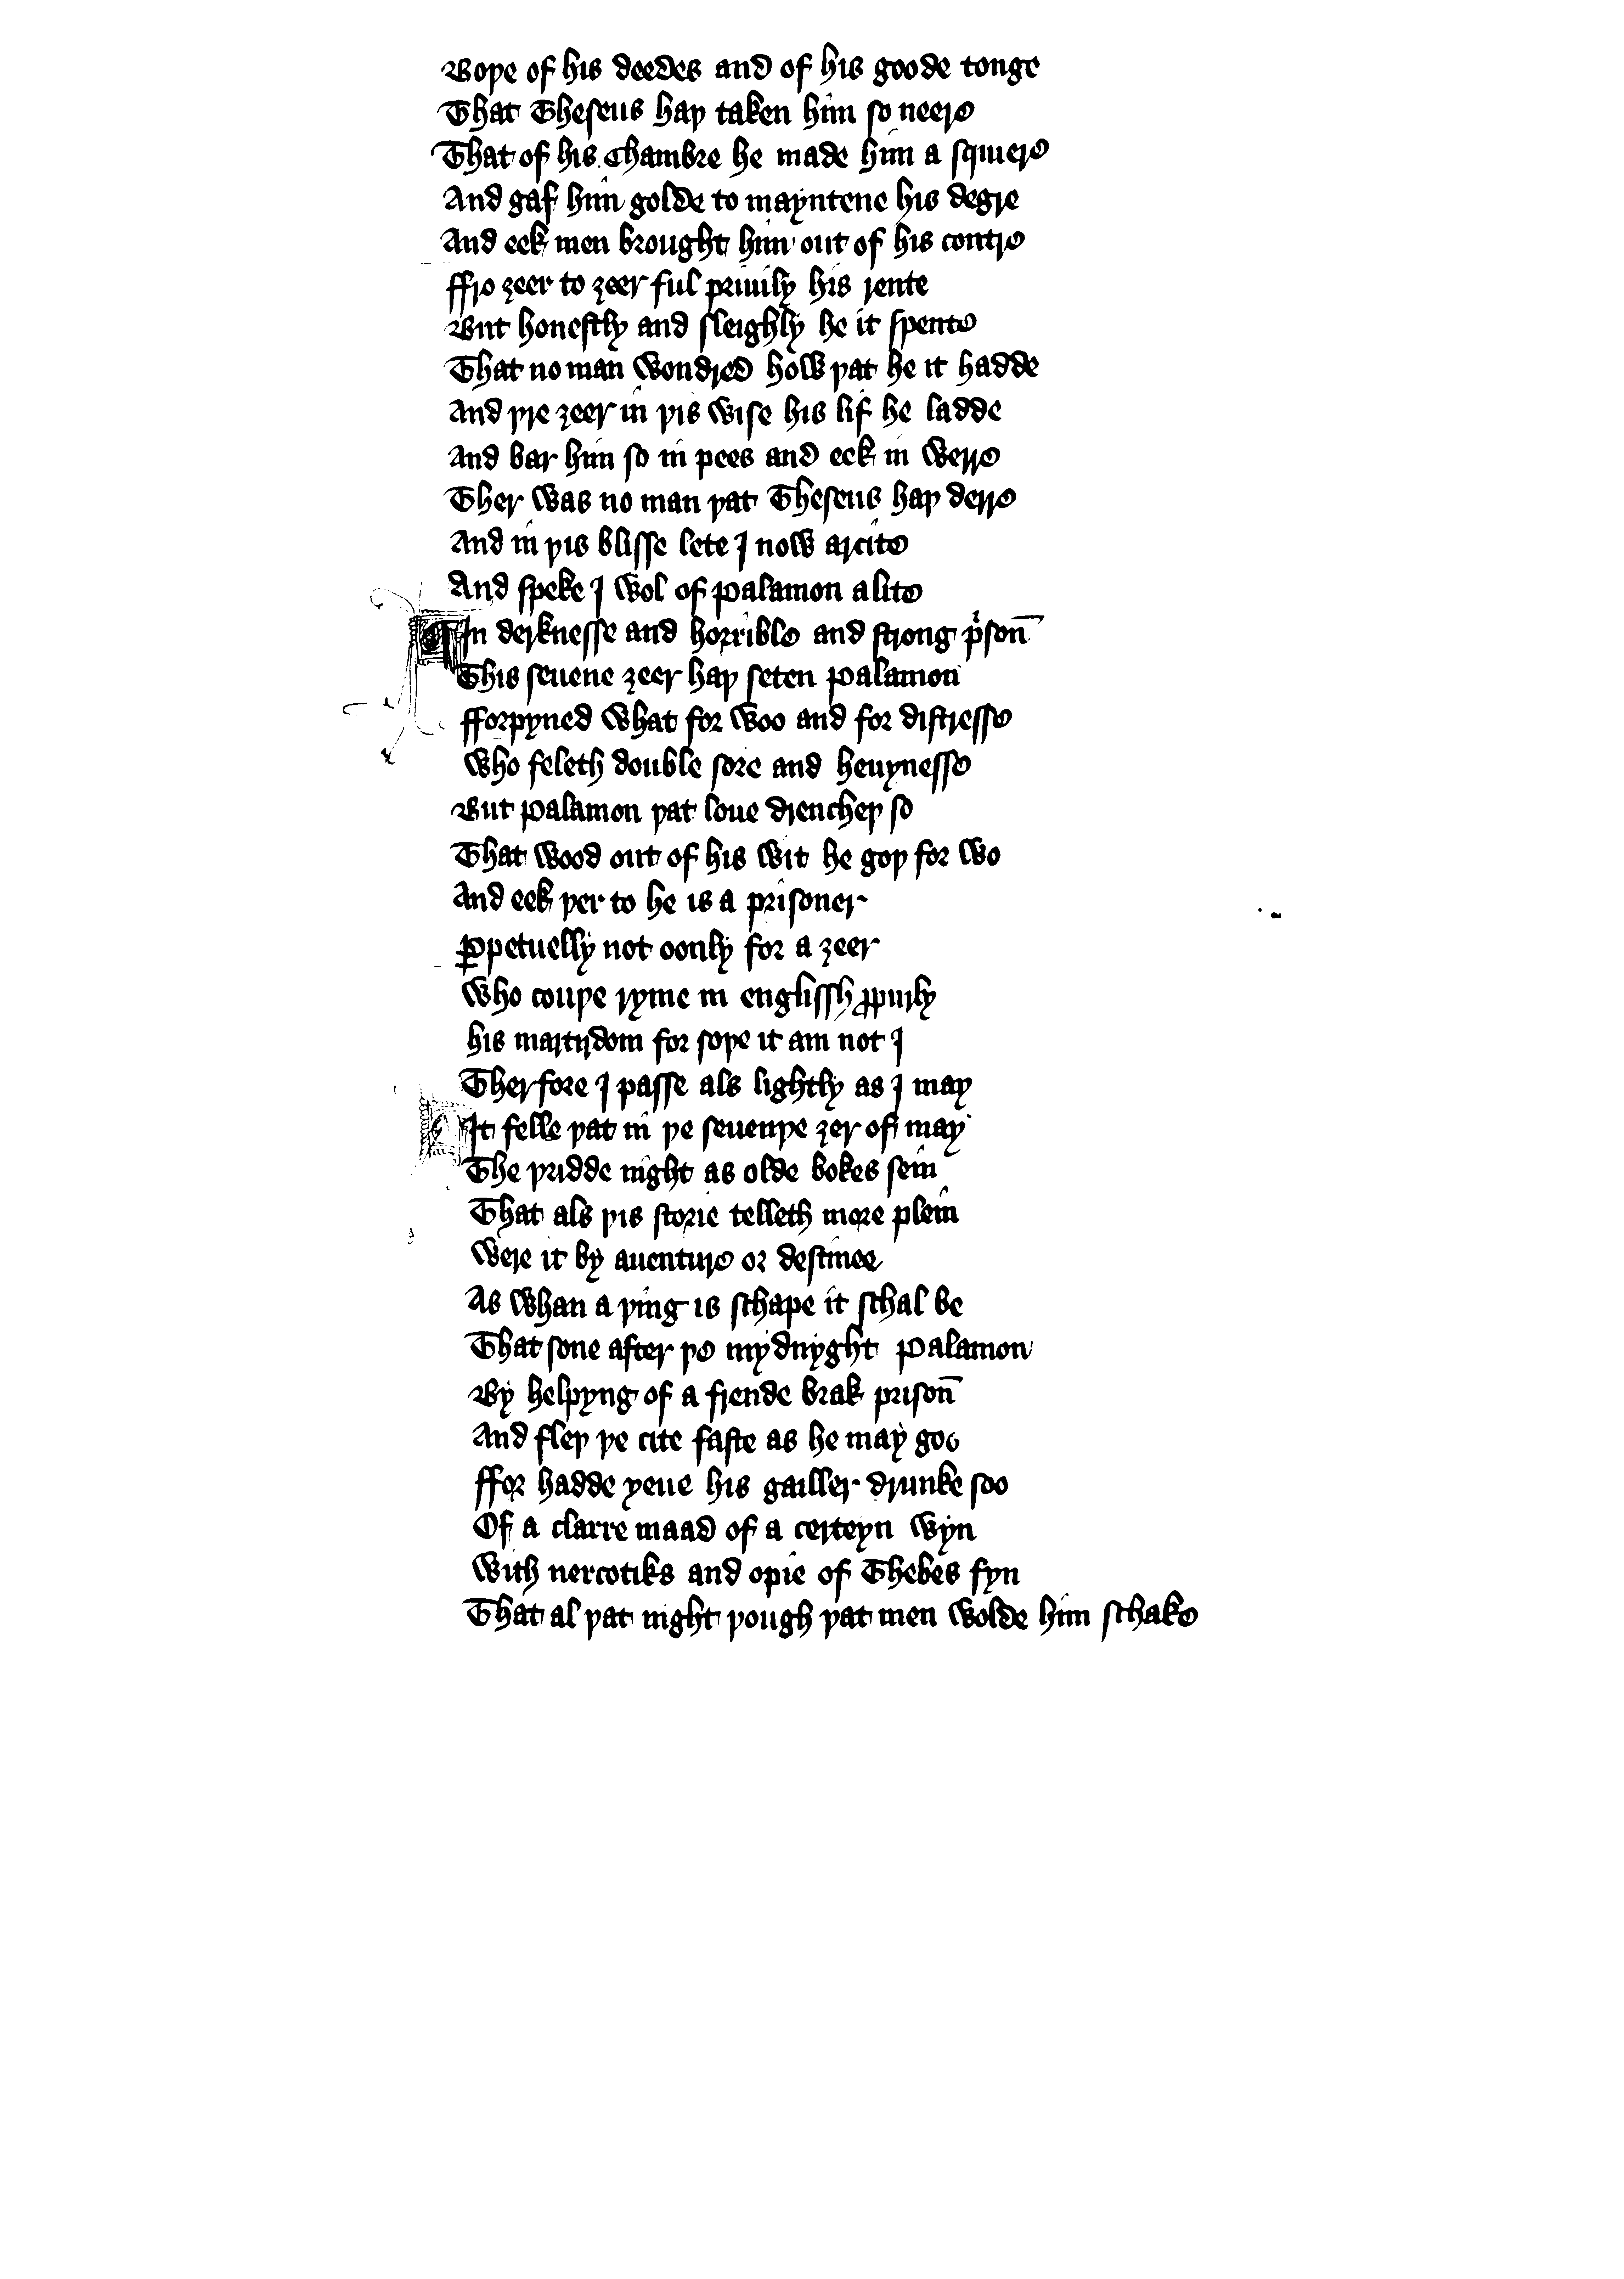 Boþe of his deedes and of his goode tonge
That Theseus haþ taken him so neere
That of his chambre he made him a squiere
And gaf him golde to mayntene his degre
And eek men brought him out of his contre
ffro ȝeer to ȝeer ful priuily his rente
But honestly and sleighly he it spente
That no man wondred how þat he it hadde
And þre ȝeer in þis wise his lif he ladde
And bar him so in pees and eek in werre
Ther was no man þat Theseus haþ derre
And in þis blisse lete I now arcite
And speke I wol of palamon alite
In derknesse and horrible and strong pͥson̄
This seuene ȝeer haþ seten palamon
fforpyned what for woo and for distresse
Who feleth double sore and heuynesse
But palamon þat loue drencheþ so
That wood out of his wit he goþ for wo
And eek þer to he is a prisoner
Ꝑpetuelly not oonly for a ȝeer
Who couþe ryme in englissh ꝓpurly
his martirdom for soþe it am not I
Therfore I passe als lightly as I may
It felle þat in þe seuenþe ȝer of may
The þridde night as olde bokes sein
That als þis storie telleth more plein
Were it by auenture or destinee
As whan a þing is schape it schal be
That sone after þe mydnyght palamon
By helpyng of a frende brak prison̄
And fleþ þe cite faste as he may goo
ffor hadde yeue his gailler drunke soo
Of a clarre maad of a certeyn wyn
With nercotiks and opie of Thebes fyn
That al þat night þough þat men wolde him schake